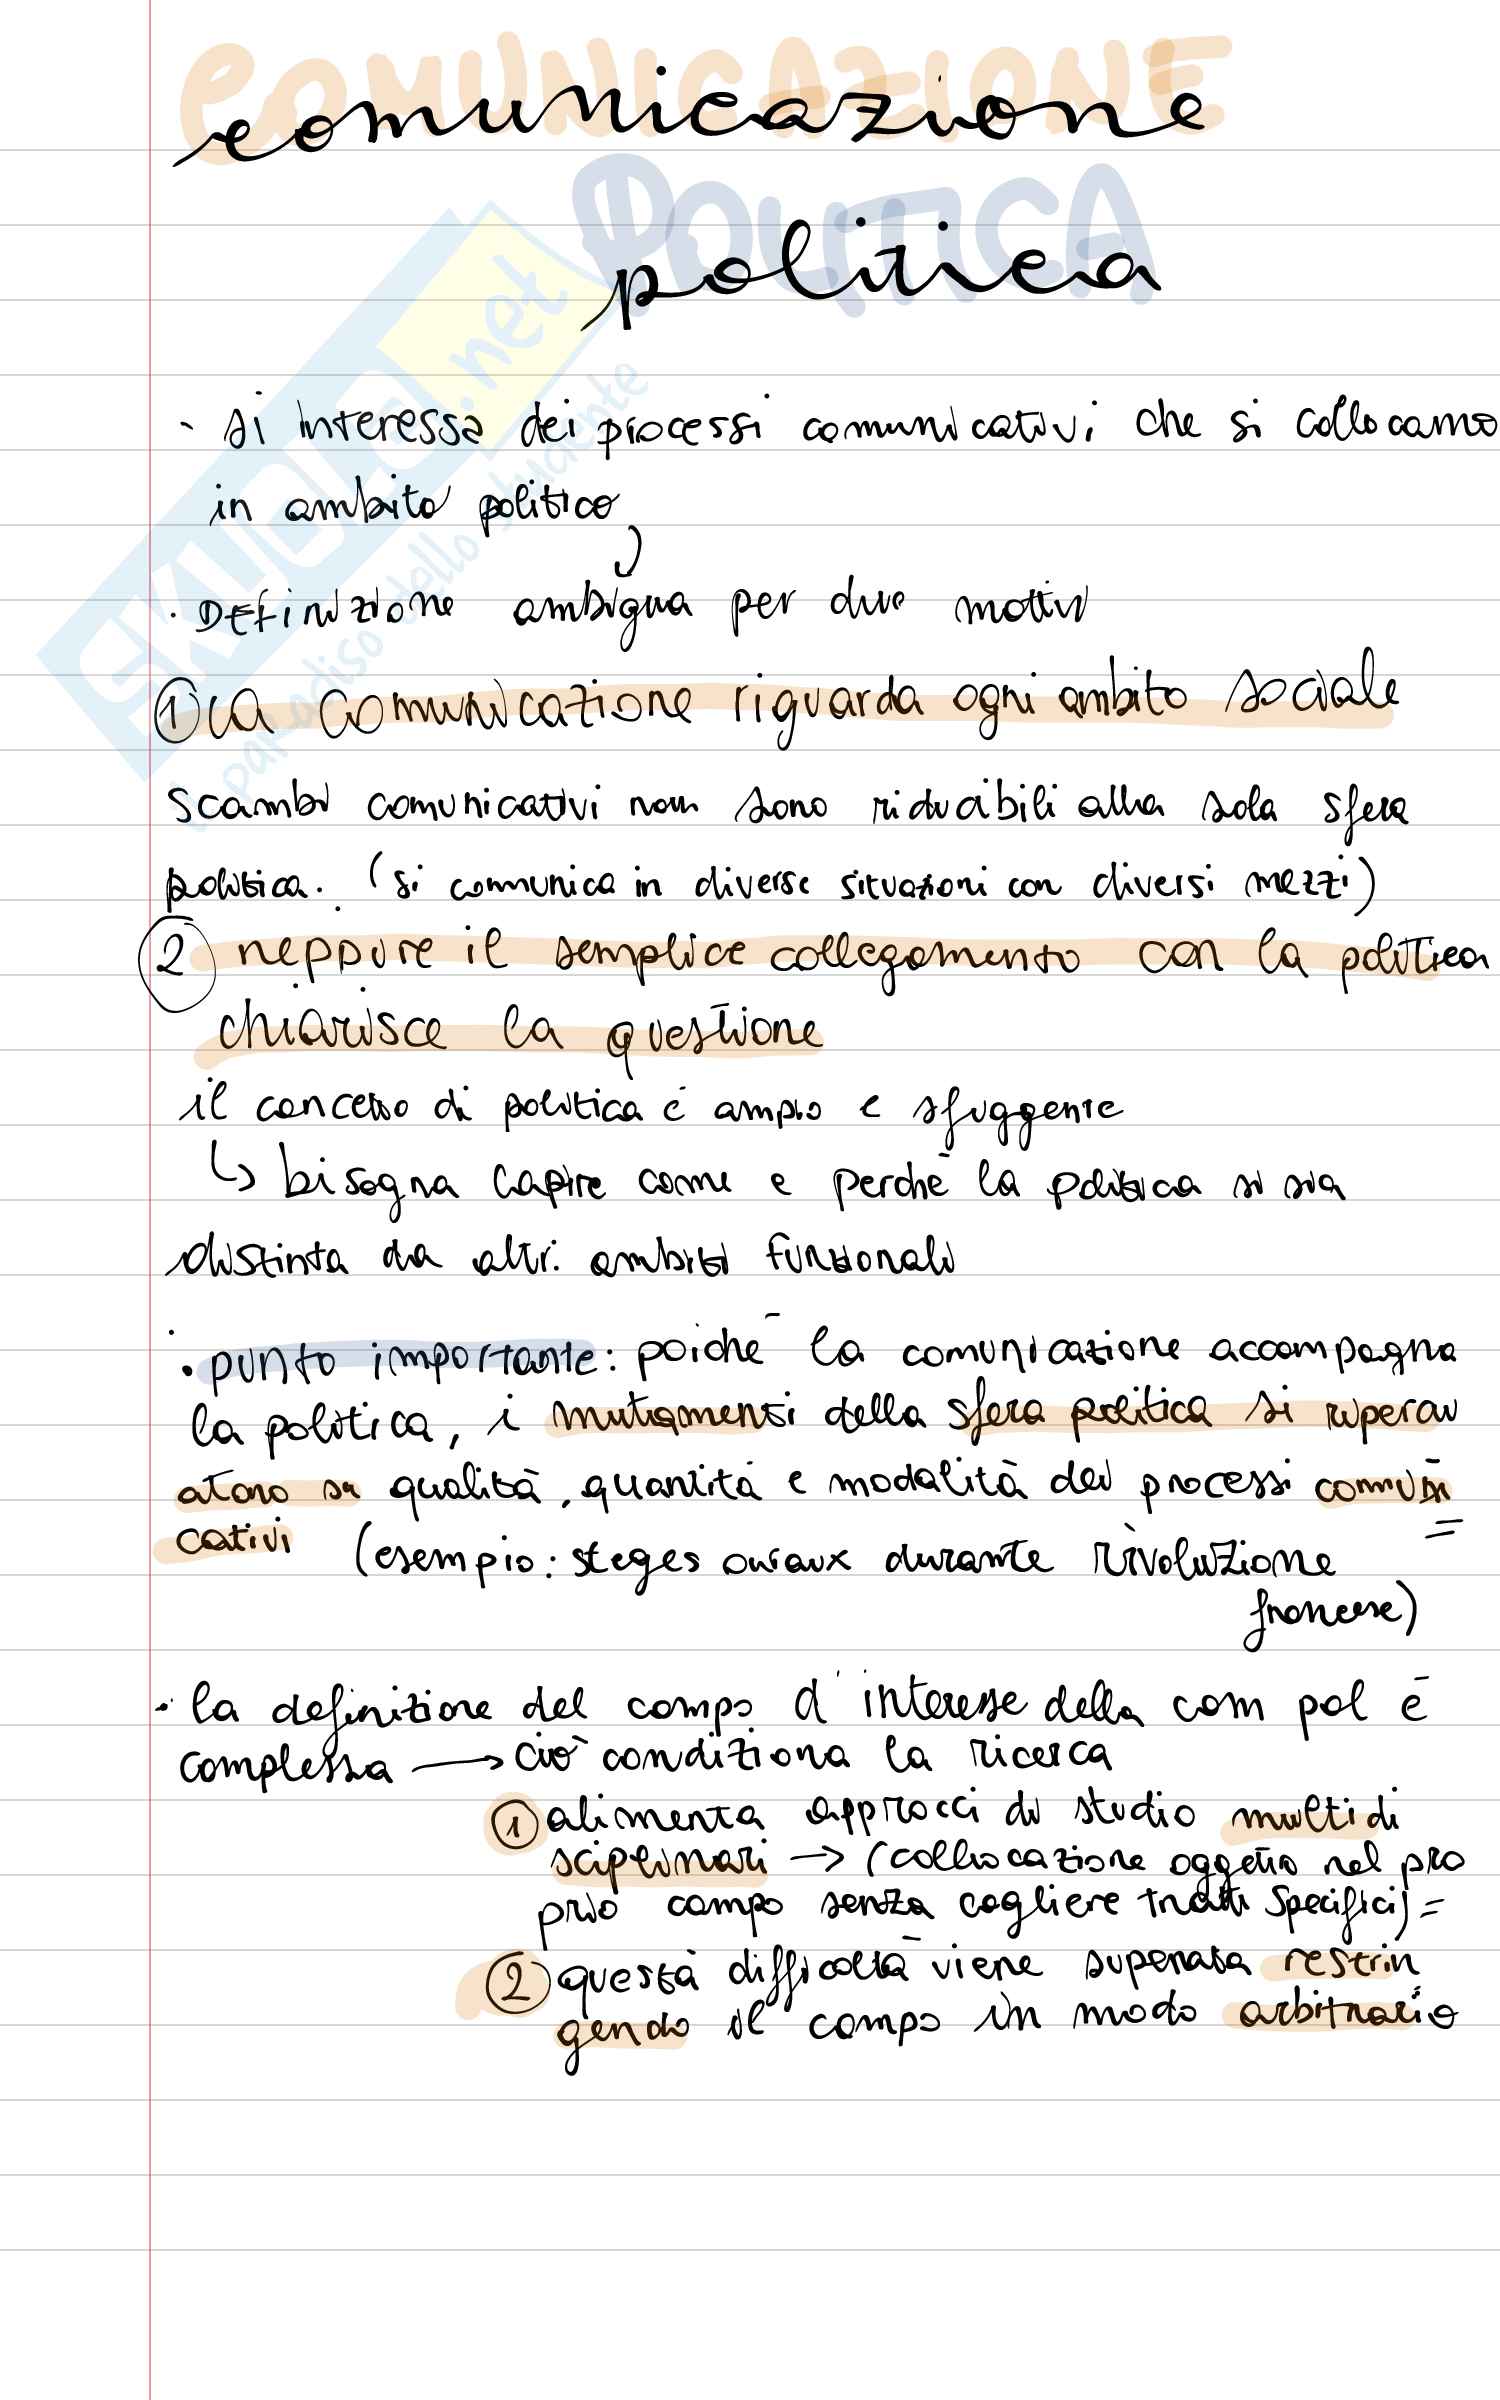 COMUNICAZIONE
comunicazione
POLITICA
politica
SKUOLA.net
il paradiso dello studente
· si interessa dei processi comunicativi che si collocano
in ambito politico
· Definizione ambigua per due motivi
1 la comunicazione riguarda ogni ambito sociale
scambi comunicativi non sono riducibili alla sola sfera
politica. (si comunica in diverse situazioni con diversi mezzi)
2 neppure il semplice collegamento con la politica
chiarisce la questione
il concetto di politica è ampio e sfuggente
↳ bisogna capire come e perché la politica si sia
distinta da altri ambiti funzionali
· punto importante: poiché la comunicazione accompagna
la politica, i mutamenti della sfera politica si
su qualità, quantità e modalità dei processi comuni
cativi (esempio: durante rivoluzione =
francese)
· la definizione del campo d'interesse della com pol è
complessa → ciò condiziona la ricerca
1 alimenta approcci di studio multidi
sciplinari → (collocazione oggetto nel pro
prio campo senza cogliere tratti specifici) =
2 questa difficoltà viene superata restrin
gendo il campo in modo arbitrario